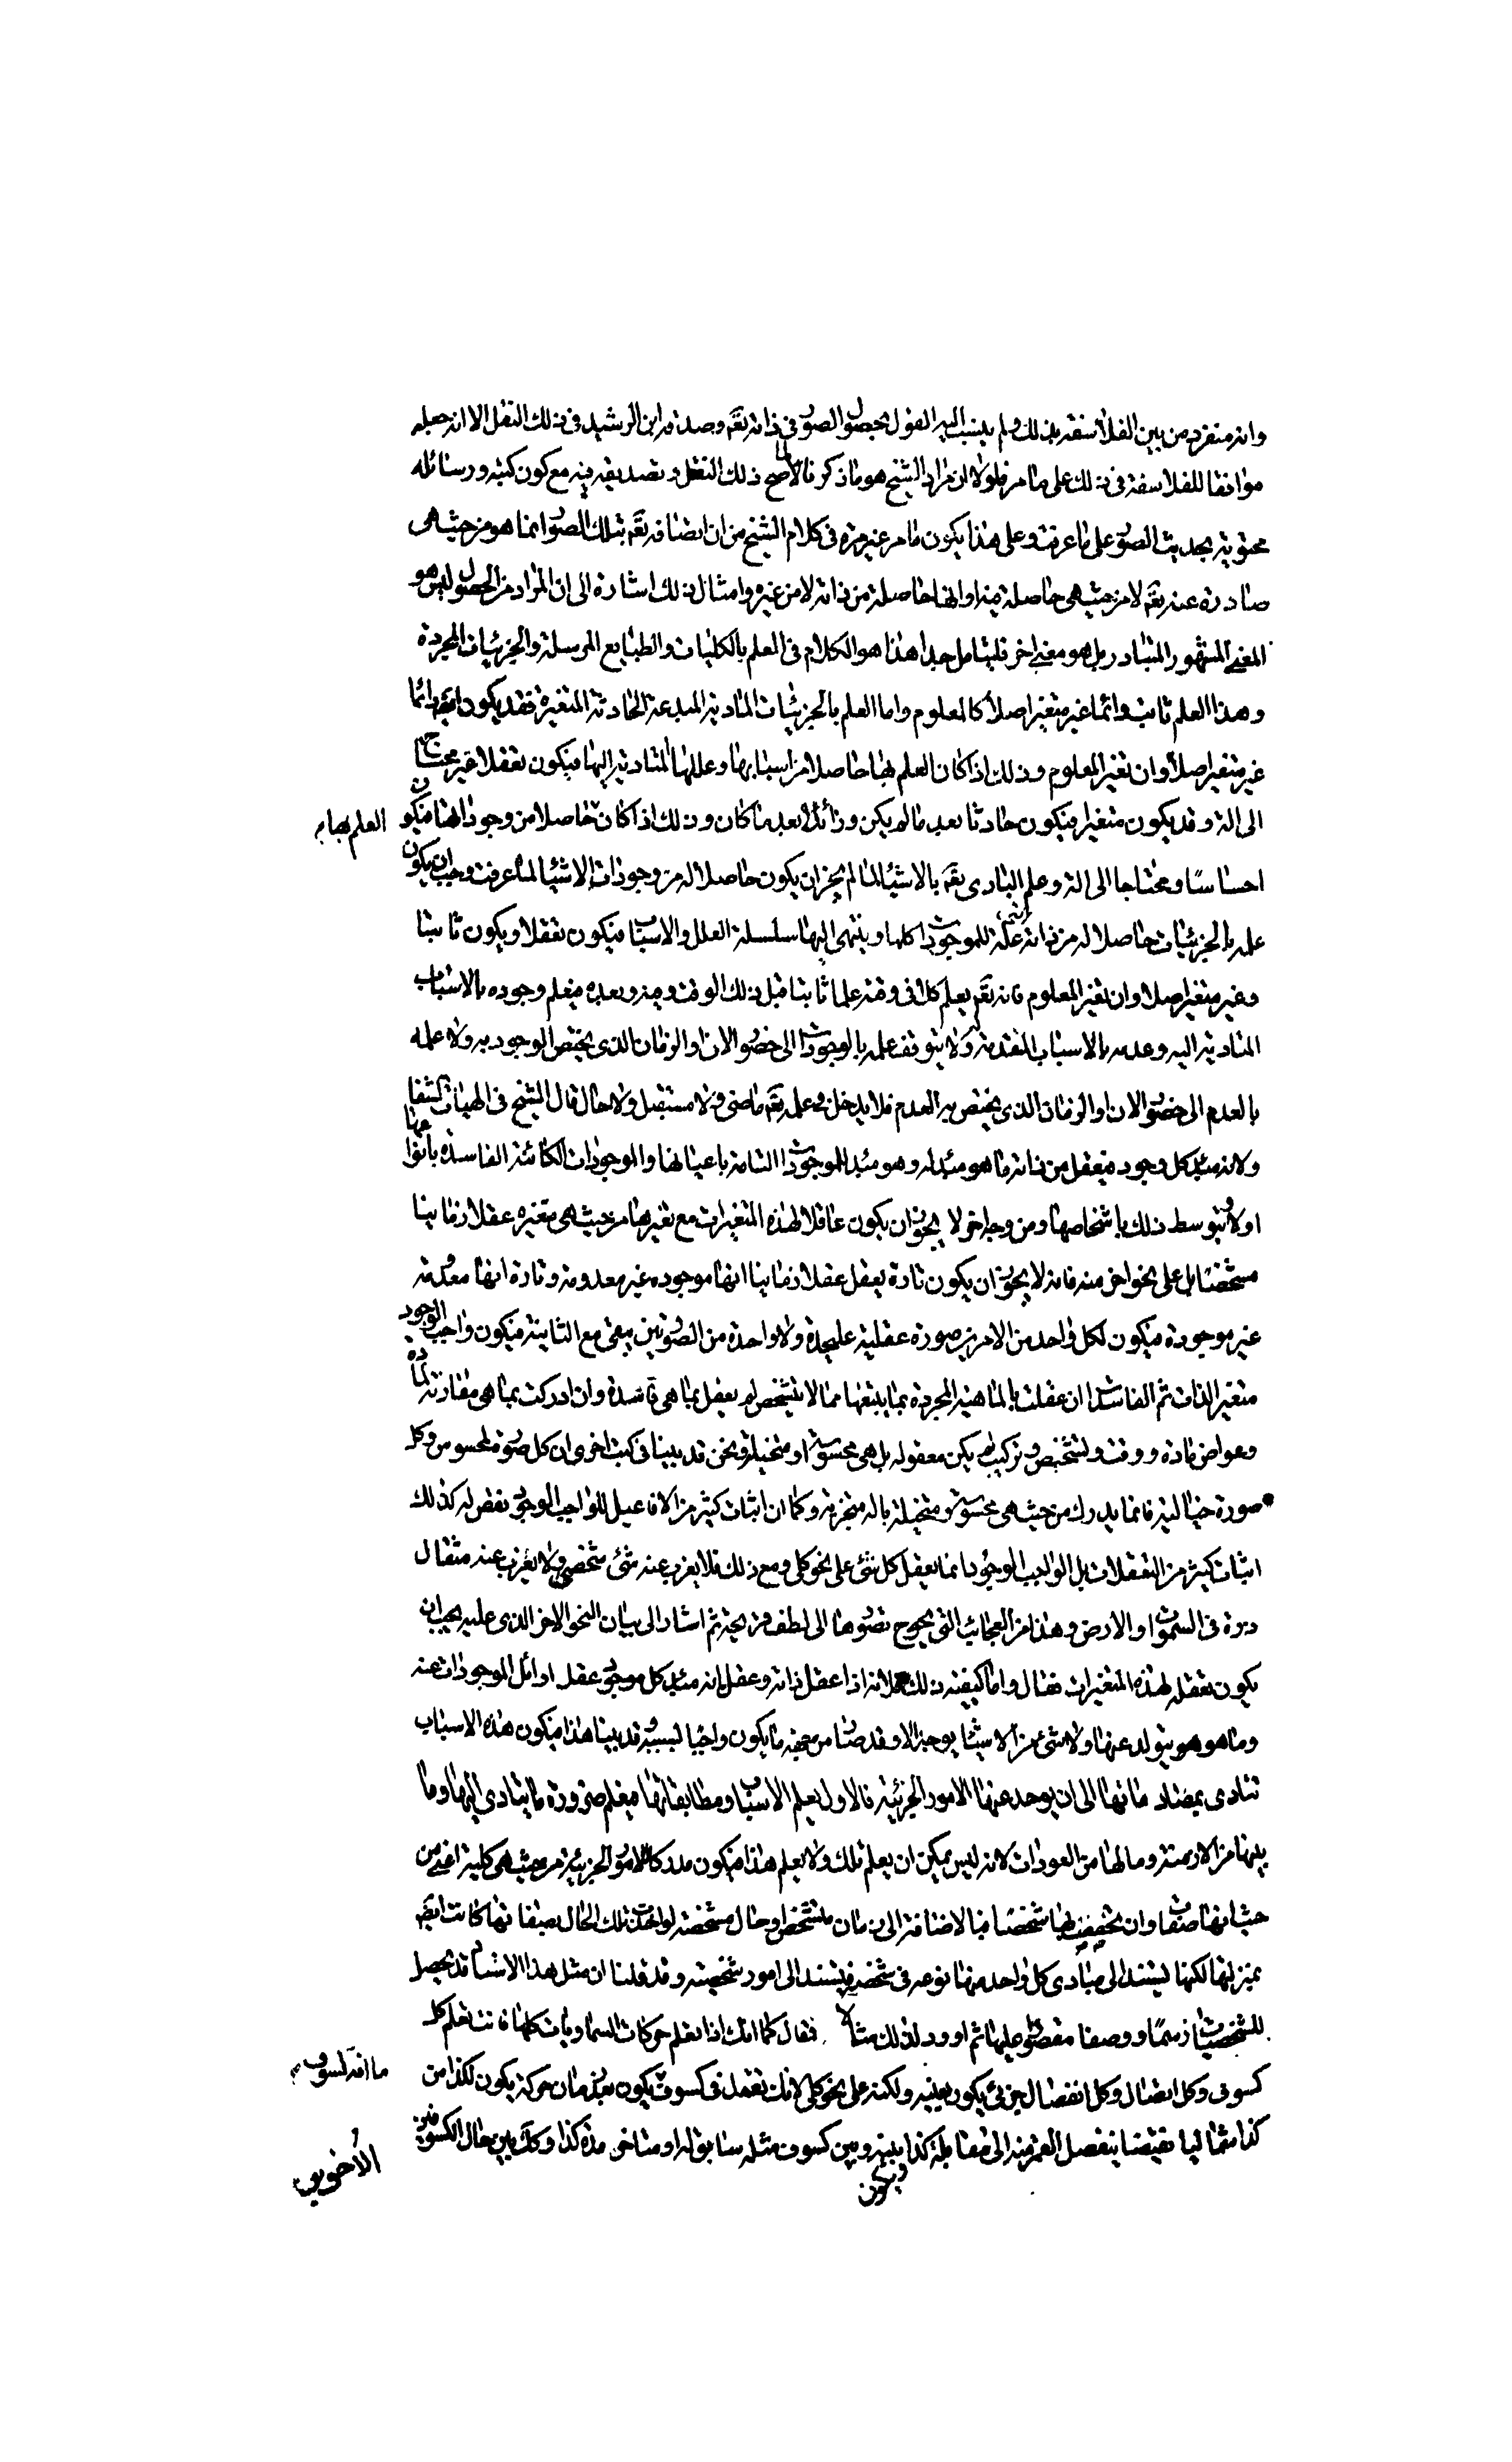 وانه متفرد من بين الفلاسفة بذلك ولم ينسب اليه القول بحصول الصور فى ذاته تعم وصدقه ابن الرشيد فى ذلك النقل الا انه جعله
موافقا للفلاسفة فى ذلك على ما مر فلولا ان مراد الشيخ هو ما ذكرنا لما صح ذلك النقل وتصديقه فيه مع كون كتبه ورسائله
محتوية بحديث الصور على ما عرفت وعلى هذا يكون ما مر غير مرة فى كلام الشيخ من ان اتصافه تعم بتلك الصور انما هو من حيث هى
صادرة عنه تعم لا من حيث هى حاصلة فيه او انها حاصلة من ذاته لا من غيره وامثال ذلك اشارة الى ان المراد من الحصول ليس هو
المعنى المشهور المتبادر بل هو معنى اخر فليتامل جدا هذا هو الكلام فى العلم بالكليات والطبايع المرسلة والجزئيات المجردة
وهذا العلم ثابت دائما غير متغير اصلا كالمعلوم واما العلم بالجزئيات المادية المبدعة الحادثة المتغيرة فقد يكون ايضا دائما
غير متغير اصلا وان تغير المعلوم وذلك اذا كان العلم بها حاصلا من اسبابها وعللها المتادية اليها فيكون تعقلا غير محتاج
الى الة وقد يكون متغيرا فيكون حادثا بعد ما لم يكن وزائلا بعد ما كان وذلك اذا كان حاصلا من وجوداتها فيكون
العلم بها
احساسا ومحتاجا الى الة وعلم البارى تعم بالاشياء لما لم يجز ان يكون حاصلا له من وجودات الاشياء لما عرفت وجب ان يكون
علمه بالجزئيات حاصلا له من ذاته علة للموجودات كلها وينتهى اليها سلسلة العلل والاسباب فيكون تعقلا ويكون ثابتا
وغير متغير اصلا وان تغير المعلوم فانه تعم يعلم كلا فى وقته علما ثابتا قبل ذلك الوقت وفيه وبعده فيعلم وجوده بالاسباب
المتادية اليه وعدمه بالاسباب المفقدمة ولا يتوقف علمه بالوجودات الى حضور الان او الزمان الذى يختص الوجود به ولا علمه
بالعدم الى حضور الان او الزمان الذى يختص به العدم فلا يدخل فى علمه تعم ماضى ولا مستقبل ولا حال قال الشيخ فى الهيات الشفا
ولانه مبدء كل وجود فيعقل من ذاته ما هو مبدء له وهو مبدء للموجودات التامة باعيانها والموجودات الكائنة الفاسدة بانواعها
اولا وبتوسط ذلك باشخاصها ومن وجه اخر لا يجوز ان يكون عاقلا لهذه المتغيرات مع تغيرها من حيث هى متغيرة عقلا زمانيا
مشخصا بل على نحو اخر منه فانه لا يجوز ان يكون تارة يعقل عقلا زمانيا انها موجودة غير معدومة وتارة انها معدومة
غير موجودة فيكون لكل واحد من الامرين صورة عقلية عليحدة ولا واحدة من الصورتين يبقى مع الثانية فيكون واجب الوجود
متغير الذات ثم الفاسدات ان عقلت بالماهية المجردة بما يتبعها مما لا يتشخص لم يعقل بما هى فاسدة وان ادركت بما هى مقارنة لمادة
وعوارض مادة ووقت وتشخص وتركيب لم يكن معقوله بل هى محسوسة او متخيلة ونحن قد بينا فى كتب اخرى ان كل صورة لمحسوس وكل
صورة خيالية فانما يدرك من حيث هى محسوسة ومتخيلة بالة متجزية وكما ان اثبات كثير من الافاعيل للواجب الوجود نقص له كذلك
اثبات كثير من التعقلات بل الواجب الوجود انما يعقل كل شئ على نحو كلى ومع ذلك فلا يعزب عنه شئ شخصى ولا يعزب عنه مثقال
ذرة فى السموات او الارض وهذا من العجائب التى يحوج تصورها الى لطف قريحة ثم اشار الى بيان النحو الاخر الذى عليه يجب ان
يكون تعقله لهذه المتغيرات فقال واما كيفية ذلك فلانه اذا عقل ذاته وعقل انه مبدء كل موجود عقل اوائل الموجودات عنه
وما هو هو يتولد عنها ولا شئ من الاشياء يوجد الا وقد صار من جهة ما يكون واجبا بسببه وقد بينا هذا فيكون هذه الاسباب
تتادى بمصادماتها الى ان يوجد عنها الامور الجزئية فالاول يعلم الاسباب ومطابقاتها فيعلم ضرورة ما يتادى اليها وما
بينها من الازمنة وما لها من العودات لانه ليس يمكن ان يعلم تلك ولا يعلم هذا فيكون مدركا للامور الجزئية من حيث هى كلية اعنى من
حيث انها صفات وان تخصصت بها شخصا فبالاضافة الى زمان متشخص او حال مشخصة لو اخذت تلك الحال بصفاتها كانت ايضا
بمنزلتها لكنها يستند الى مبادى كل واحد منها نوعه فى شخصه فيستند الى امور شخصية وقد قلنا ان مثل هذا الاسناد قد يحصل
للشخصيات رسما ووصفا مقصورا عليها ثم اورد لذلك مثالا فقال كما انك اذا تعلم حركات السماويات كلها فانت تعلم كل
كسوف وكل اتصال وكل انفصال جزئى يكون بعينه ولكنه على نحو كلى لانك تقول فى كسوف ما انه كسوف يكون بعد زمان حركة يكون لكذا من
كذا شماليا نصفيا ينفصل القمر منه الى مقابلة كذا ويكون بينه وبين كسوف مثله سابق له او متاخر مدة كذا وكذلك بين حال الكسوفين
الاخريين